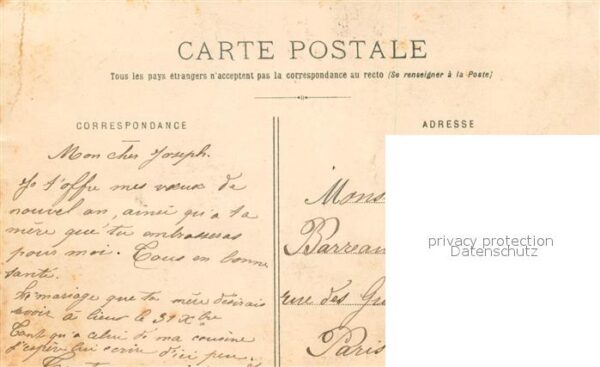 CARTE POSTALE
Tous les pays étrangers n'acceptent pas la correspondance au recto (Se renseigner à la Poste)
CORRESPONDANCE
Mon cher Joseph.
Je t'offre mes vœux de
nouvel an, ainsi qu'a ta
mère que tu embrasseras
pour moi. Tous en bonne
santé.
Le mariage que ta mère désirais
savoir à lieu le 31 Xbre
Tant qu'a celui de ma cousine
j'espère lui écrire d'ici peu.
ADRESSE
Mons
Barreau
rue des Gu
Paris
privacy protection
Datenschutz